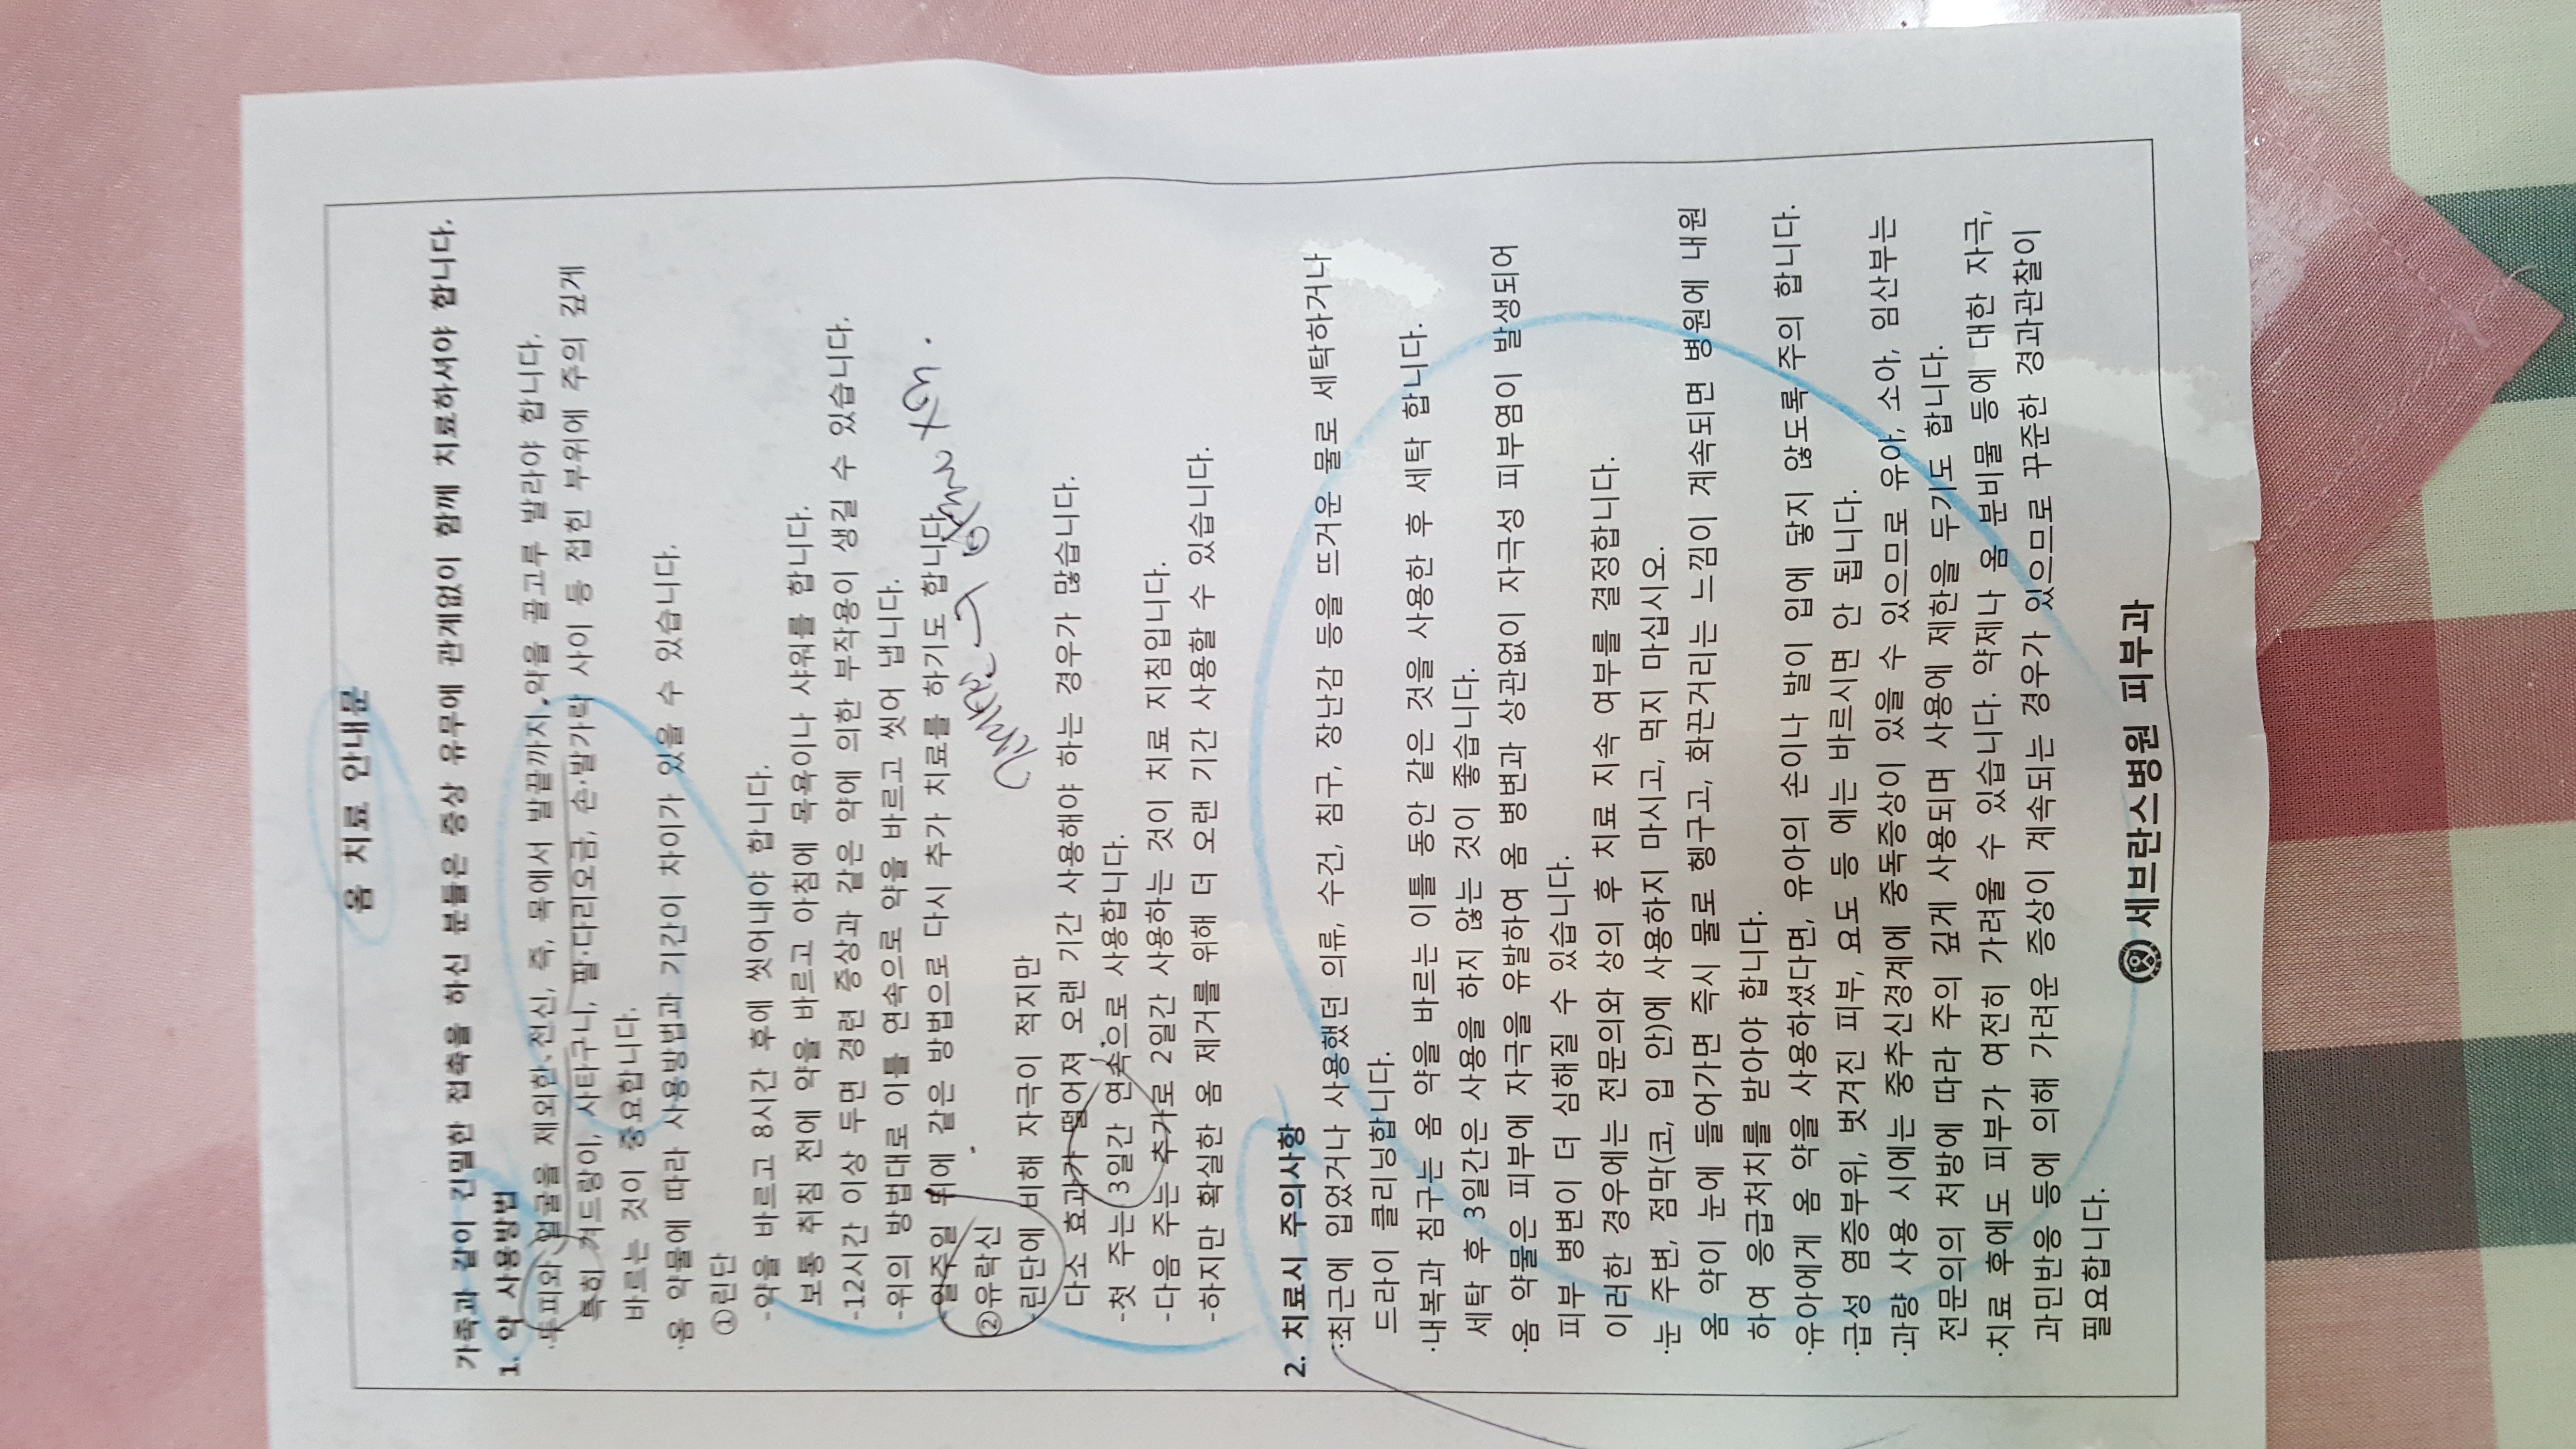 옴 치료 안내문
가족과 같이 긴밀한 접촉을 하신 분들은 증상 유무에 관계없이 함께 치료하셔야 합니다.
1. 약 사용방법
·두피와 얼굴을 제외한 전신, 즉, 목에서 발끝까지 약을 골고루 발라야 합니다.
특히 겨드랑이, 사타구니, 팔·다리오금, 손·발가락 사이 등 접힌 부위에 주의 깊게
바르는 것이 중요합니다.
·옴 약물에 따라 사용방법과 기간이 차이가 있을 수 있습니다.
①린단
-약을 바르고 8시간 후에 씻어내야 합니다.
보통 취침 전에 약을 바르고 아침에 목욕이나 샤워를 합니다.
-12시간 이상 두면 경련 증상과 같은 약에 의한 부작용이 생길 수 있습니다.
-위의 방법대로 이틀 연속으로 약을 바르고 씻어 냅니다.
-일주일 뒤에 같은 방법으로 다시 추가 치료를 하기도 합니다.
②유락신
-린단에 비해 자극이 적지만
다소 효과가 떨어져 오랜 기간 사용해야 하는 경우가 많습니다.
-첫 주는 3일간 연속으로 사용합니다.
-다음 주는 추가로 2일간 사용하는 것이 치료 지침입니다.
-하지만 확실한 옴 제거를 위해 더 오랜 기간 사용할 수 있습니다.
2. 치료시 주의사항
·최근에 입었거나 사용했던 의류, 수건, 침구, 장난감 등을 뜨거운 물로 세탁하거나
드라이 클리닝합니다.
·내복과 침구는 옴 약을 바르는 이틀 동안 같은 것을 사용한 후 세탁 합니다.
세탁 후 3일간은 사용을 하지 않는 것이 좋습니다.
·옴 약물은 피부에 자극을 유발하여 옴 병변과 상관없이 자극성 피부염이 발생되어
피부 병변이 더 심해질 수 있습니다.
이러한 경우에는 전문의와 상의 후 치료 지속 여부를 결정합니다.
·눈 주변, 점막(코, 입 안)에 사용하지 마시고, 먹지 마십시오.
옴 약이 눈에 들어가면 즉시 물로 헹구고, 화끈거리는 느낌이 계속되면 병원에 내원
하여 응급처치를 받아야 합니다.
·유아에게 옴 약을 사용하셨다면, 유아의 손이나 발이 입에 닿지 않도록 주의 합니다.
·급성 염증부위, 벗겨진 피부, 요도 등 에는 바르시면 안 됩니다.
·과량 사용 시에는 중추신경계에 중독증상이 있을 수 있으므로 유아, 소아, 임산부는
전문의의 처방에 따라 주의 깊게 사용되며 사용에 제한을 두기도 합니다.
·치료 후에도 피부가 여전히 가려울 수 있습니다. 약제나 옴 분비물 등에 대한 자극,
과민반응 등에 의해 가려운 증상이 계속되는 경우가 있으므로 꾸준한 경과관찰이
필요합니다.
세브란스병원 피부과